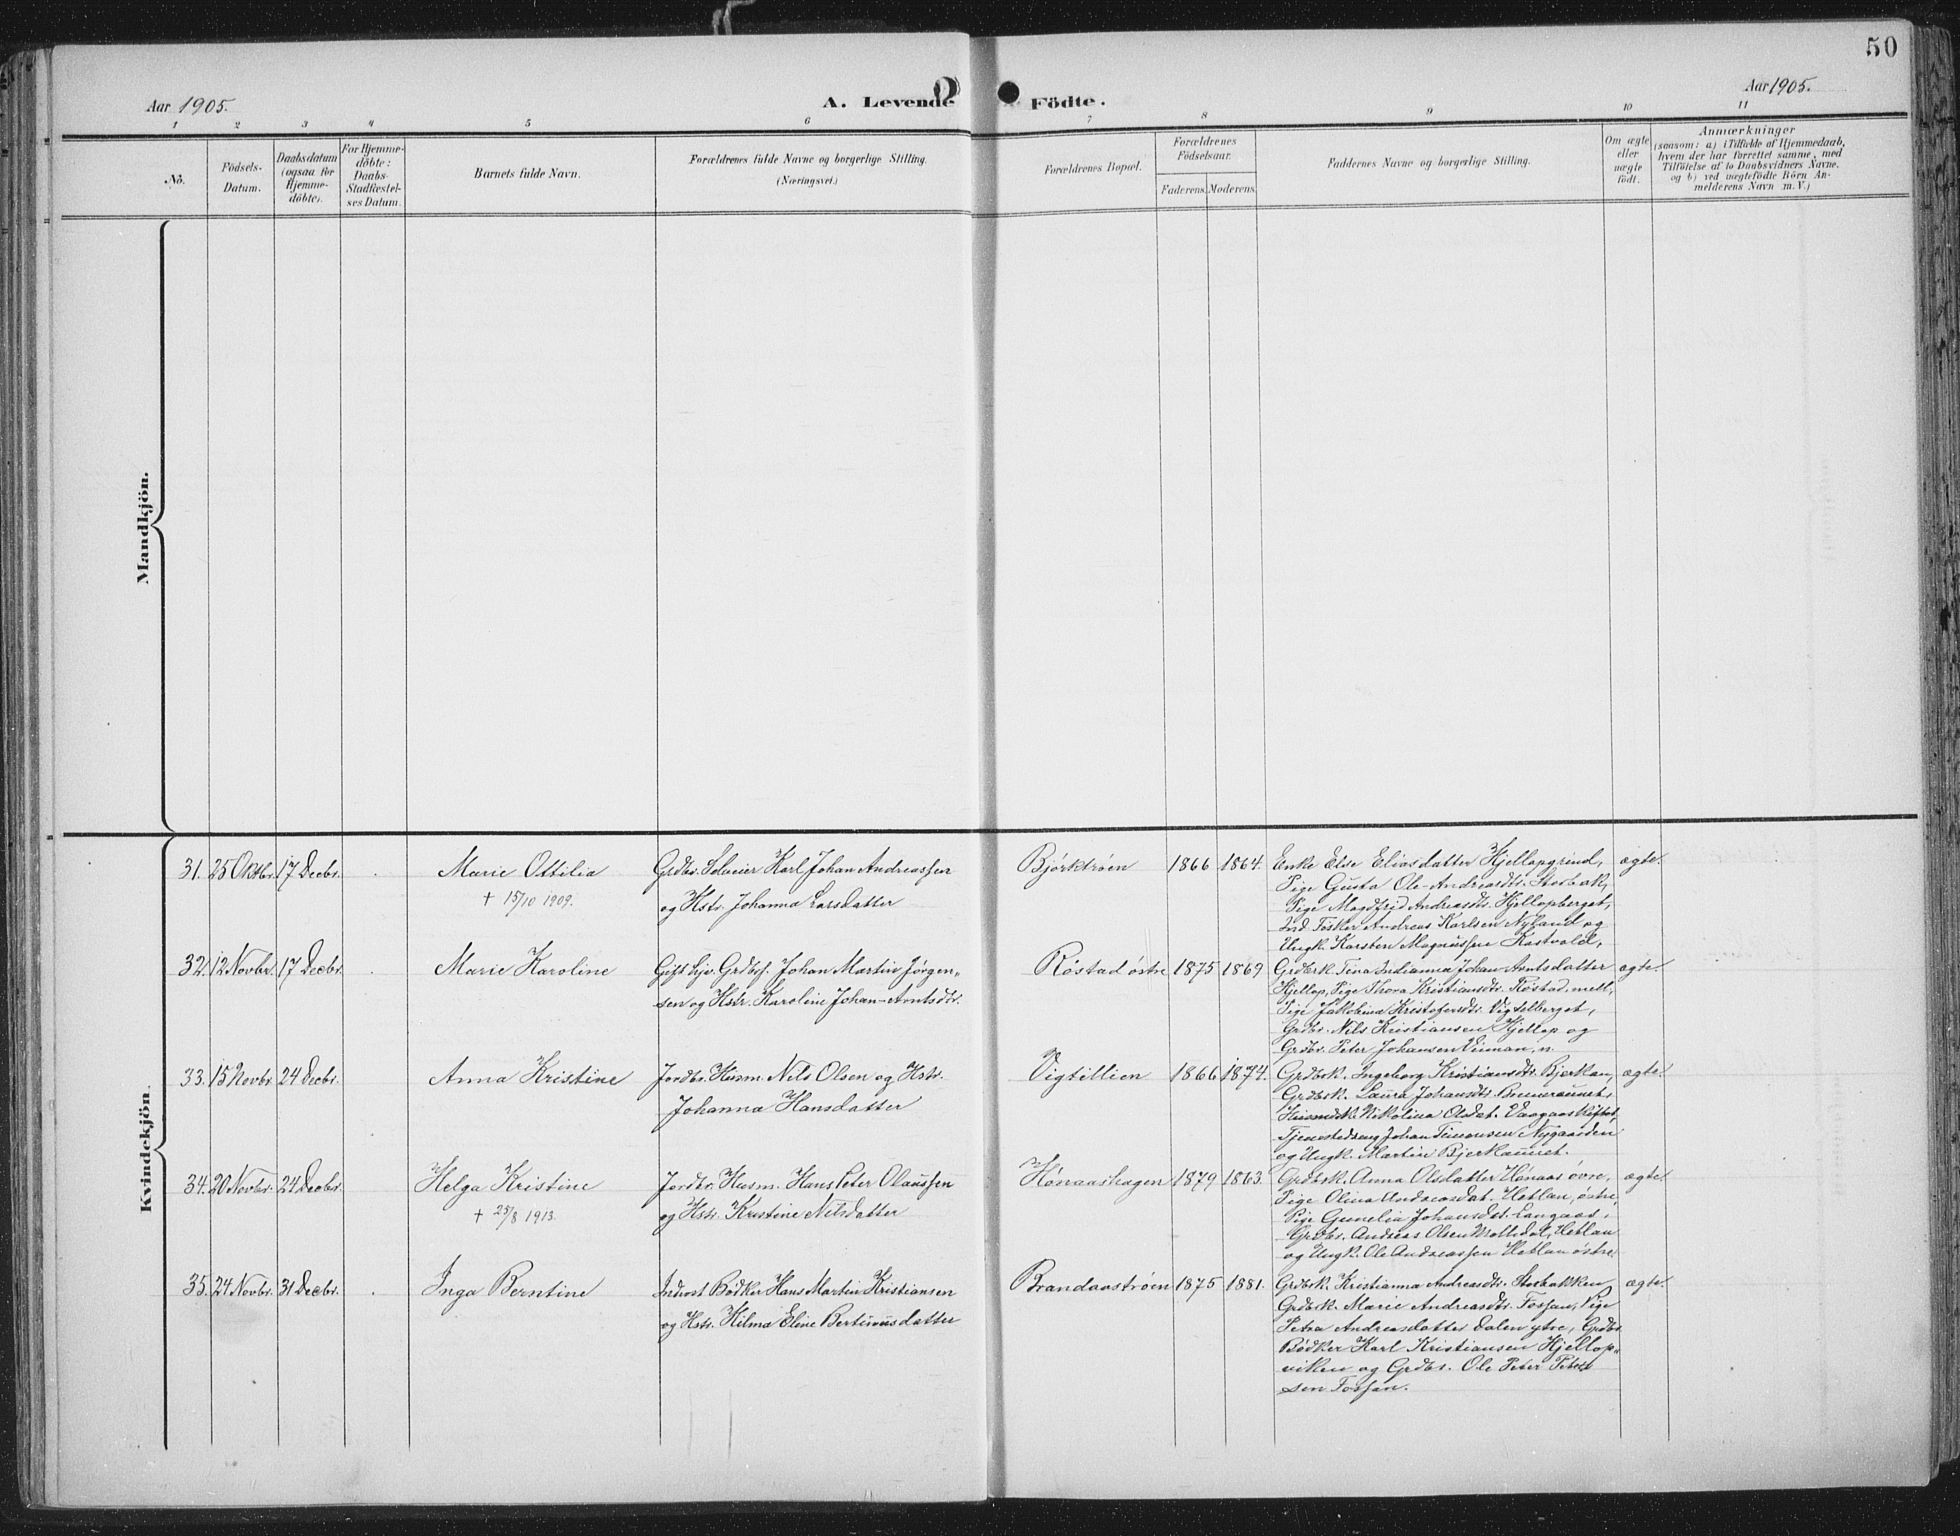 50
Aar 1905.
A. Levende Födte.
Aar 1905.
1 2 3 4 5 6 7 8 9 10 11
No.
Födsels-
Datum.
Daabsdatum
(ogsaa for
Hjemme-
döbte).
For Hjemme-
döbte:
Daabs-
Stadfæstel-
ses Datum.
Barnets fulde Navn.
Forældrenes fulde Navne og borgerlige Stilling.
(Næringsvei.)
Forældrenes Bopæl.
Forældrenes
Födselsaar.
Faderens. Moderens.
Faddernes Navne og borgerlige Stilling.
Om ægte
eller
uægte
födt.
Anmærkninger
(saasom: a) i Tilfælde af Hjemmedaab,
hvem der har forrettet samme, med
Tilföielse af to Daabsvidners Navne,
og b) ved uægtefödte Börn An-
melderens Navn m. V.)
Mandkjön.
Kvindekjön.
31. 25 Oktbr. 17 Decbr.
Marie Ottilia
+ 15/10 1909.
Grdbr. Karl Johan Andreassen
og Hstr. Johanna Larsdatter
Bjørktrøen 1866 1864.
Enke Else Eliasdatter Hjellopgrind,
Pige Gusta Ole-Andreasdtr. Storbak,
Pige Magdfrid Andreasdtr. Hjellopberget,
Ind. Fisker Andreas Karlsen Nyland og
Ungk. Karsten Magnussen Kastvold,
ægte.
32. 12 Novbr. 17 Decbr.
Marie Karoline
Gift Grdbr. Johan Martin Jørgen-
sen og Hstr. Karoline Johan-Arntsdtr.
Røstad østre 1875 1869
Grdbrk. Tina Indianna Johan-Arntsdatter
Hjellop, Pige Thora Kristiansdtr. Røstad mell.,
Pige Jakobina Kristofersdtr. Vigtelberget,
Grdbr. Nils Kristiansen Hjellop og
Grdbr. Peter Johansen
ægte.
33. 15 Novbr. 24 Decbr.
Anna Kristine
Jordbr. Husm. Nils Olsen og Hstr.
Johanna Hansdatter
Vigtillien 1866 1874.
Grdbrk. Ingeborg Kristiansdtr. Bjerkan,
Grdbrk. Laura Johansdtr.
Husmdk. Nikolina Olsdat.
Johan Nygaarden
og Ungk. Martin
ægte.
34. 20 Novbr. 24 Decbr.
Helga Kristine
+ 25/8 1913.
Jordbr. Husm. Hans Peter Olaussen
og Hstr. Kristine Nilsdatter
Hønaashagen 1879 1863.
Grdbrk. Anna Olsdatter Hønaas øvre,
Pige Olina Andreasdat. Hetlan, østre,
Pige Gunelia Johansdat. Langaas,
Grdbr. Andreas Olsen Molledal, Hetlan
og Ungk. Ole Andreassen Hetlan østre
ægte
35. 24 Novbr. 31 Decbr.
Inga Berntine
Indrost Bødker Hans Martin Kristiansen
og Hstr. Hilma Eline Bertinusdatter
Brandaastrøen 1875 1881.
Grdbrk. Kristianna Andreasdtr. Storbakken,
Grdbrk. Marie Andreasdtr. Fossan, Pige
Petra Andreasdatter Dalen ytre, Grdbr.
Bødker Karl Kristiansen Hjellop-
viken og Grdbr. Ole Peter Peter
sen Fossan.
ægte.